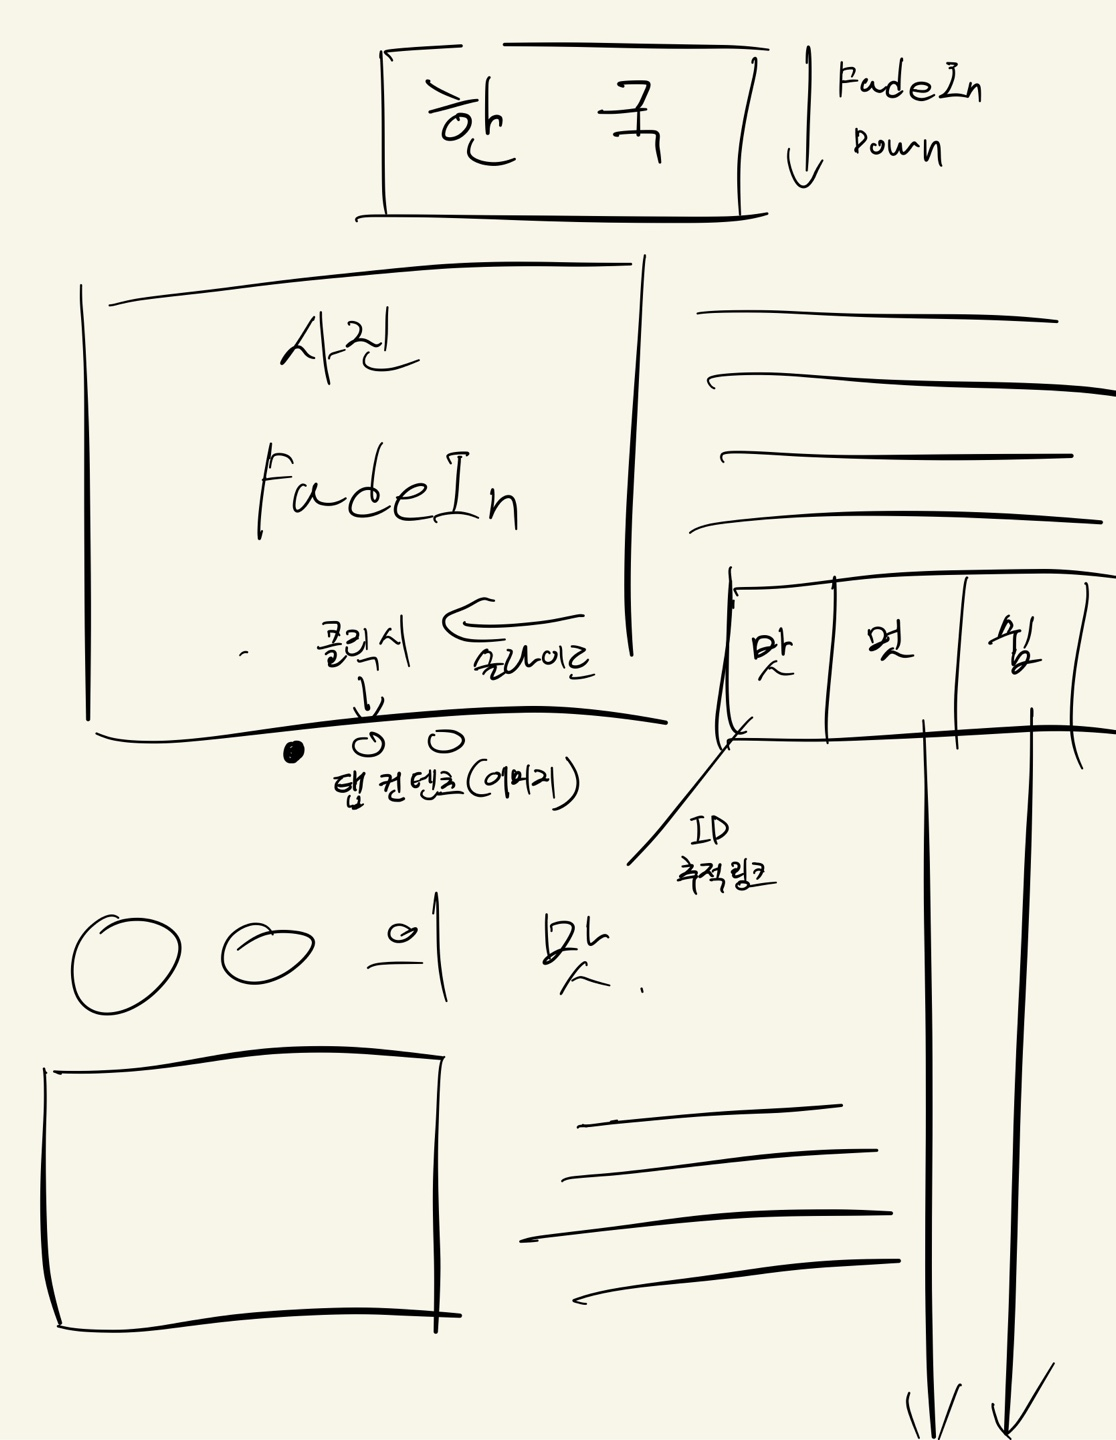 한 국
FadeIn
Down
사진
FadeIn
클릭시
슬라이드
탭 컨텐츠(이미지)
맛 멋 쉼
ID
추적링크
○○의 맛.